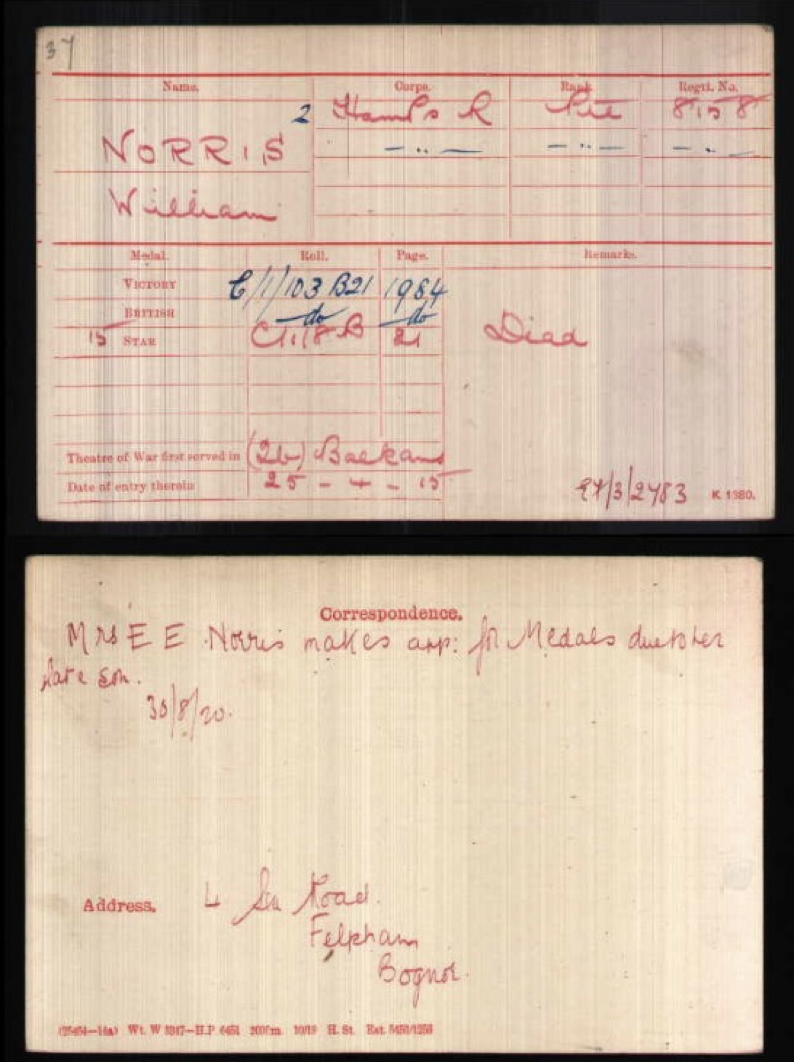 37
Name. Corps. Rank. Regtl. No.
2 Hamps R Pte 8158
NORRIS — " — — " — — " —
William
Medal. Roll. Page. Remarks.
VICTORY C/1/103 B21 1984
BRITISH do do
15 STAR C/1/8 B 21 Died
Theatre of War first served in (2b) Balkans
Date of entry therein 25 - 4 - 15
/3/2483 K 1380.
Correspondence.
Mrs E E Norris makes app: for Medals due to her
late son.
30/8/20.
Address. 4 Road.
Felpham
Bognor.
Wt. W 5317—H.P 6451 200m. 10/19 H. St.